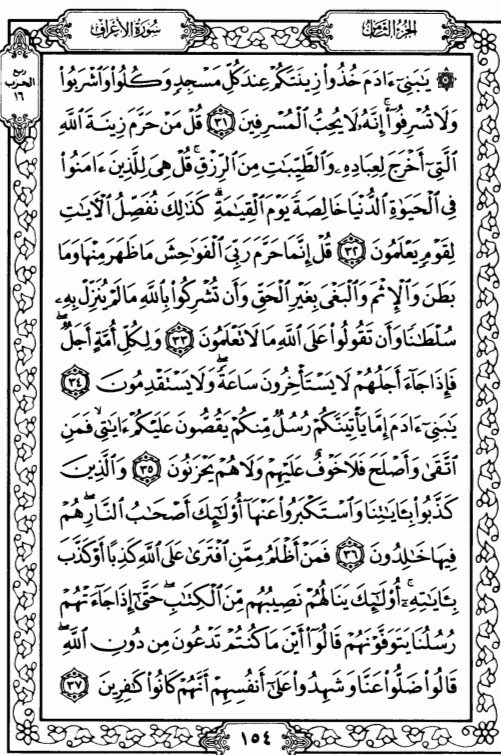 الجزء الثامن
سورة الأعراف
ربع
الحزب
١٦
۞ يَٰبَنِيٓ ءَادَمَ خُذُواْ زِينَتَكُمۡ عِندَ كُلِّ مَسۡجِدٖ وَكُلُواْ وَٱشۡرَبُواْ
وَلَا تُسۡرِفُوٓاْۚ إِنَّهُۥ لَا يُحِبُّ ٱلۡمُسۡرِفِينَ ٣١ قُلۡ مَنۡ حَرَّمَ زِينَةَ ٱللَّهِ
ٱلَّتِيٓ أَخۡرَجَ لِعِبَادِهِۦ وَٱلطَّيِّبَٰتِ مِنَ ٱلرِّزۡقِۚ قُلۡ هِيَ لِلَّذِينَ ءَامَنُواْ
فِي ٱلۡحَيَوٰةِ ٱلدُّنۡيَا خَالِصَةٗ يَوۡمَ ٱلۡقِيَٰمَةِۗ كَذَٰلِكَ نُفَصِّلُ ٱلۡأٓيَٰتِ
لِقَوۡمٖ يَعۡلَمُونَ ٣٢ قُلۡ إِنَّمَا حَرَّمَ رَبِّيَ ٱلۡفَوَٰحِشَ مَا ظَهَرَ مِنۡهَا وَمَا
بَطَنَ وَٱلۡإِثۡمَ وَٱلۡبَغۡيَ بِغَيۡرِ ٱلۡحَقِّ وَأَن تُشۡرِكُواْ بِٱللَّهِ مَا لَمۡ يُنَزِّلۡ بِهِۦ
سُلۡطَٰنٗا وَأَن تَقُولُواْ عَلَى ٱللَّهِ مَا لَا تَعۡلَمُونَ ٣٣ وَلِكُلِّ أُمَّةٍ أَجَلٞۖ
فَإِذَا جَآءَ أَجَلُهُمۡ لَا يَسۡتَأۡخِرُونَ سَاعَةٗ وَلَا يَسۡتَقۡدِمُونَ ٣٤
يَٰبَنِيٓ ءَادَمَ إِمَّا يَأۡتِيَنَّكُمۡ رُسُلٞ مِّنكُمۡ يَقُصُّونَ عَلَيۡكُمۡ ءَايَٰتِي فَمَنِ
ٱتَّقَىٰ وَأَصۡلَحَ فَلَا خَوۡفٌ عَلَيۡهِمۡ وَلَا هُمۡ يَحۡزَنُونَ ٣٥ وَٱلَّذِينَ
كَذَّبُواْ بِـَٔايَٰتِنَا وَٱسۡتَكۡبَرُواْ عَنۡهَآ أُوْلَٰٓئِكَ أَصۡحَٰبُ ٱلنَّارِۖ هُمۡ
فِيهَا خَٰلِدُونَ ٣٦ فَمَنۡ أَظۡلَمُ مِمَّنِ ٱفۡتَرَىٰ عَلَى ٱللَّهِ كَذِبًا أَوۡ كَذَّبَ
بِـَٔايَٰتِهِۦٓۚ أُوْلَٰٓئِكَ يَنَالُهُمۡ نَصِيبُهُم مِّنَ ٱلۡكِتَٰبِۖ حَتَّىٰٓ إِذَا جَآءَتۡهُمۡ
رُسُلُنَا يَتَوَفَّوۡنَهُمۡ قَالُوٓاْ أَيۡنَ مَا كُنتُمۡ تَدۡعُونَ مِن دُونِ ٱللَّهِۖ
قَالُواْ ضَلُّواْ عَنَّا وَشَهِدُواْ عَلَىٰٓ أَنفُسِهِمۡ أَنَّهُمۡ كَانُواْ كَٰفِرِينَ ٣٧
١٥٤